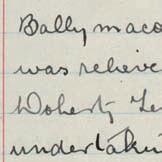 Ballymaco
was relieve
Doherty Le
undertakin